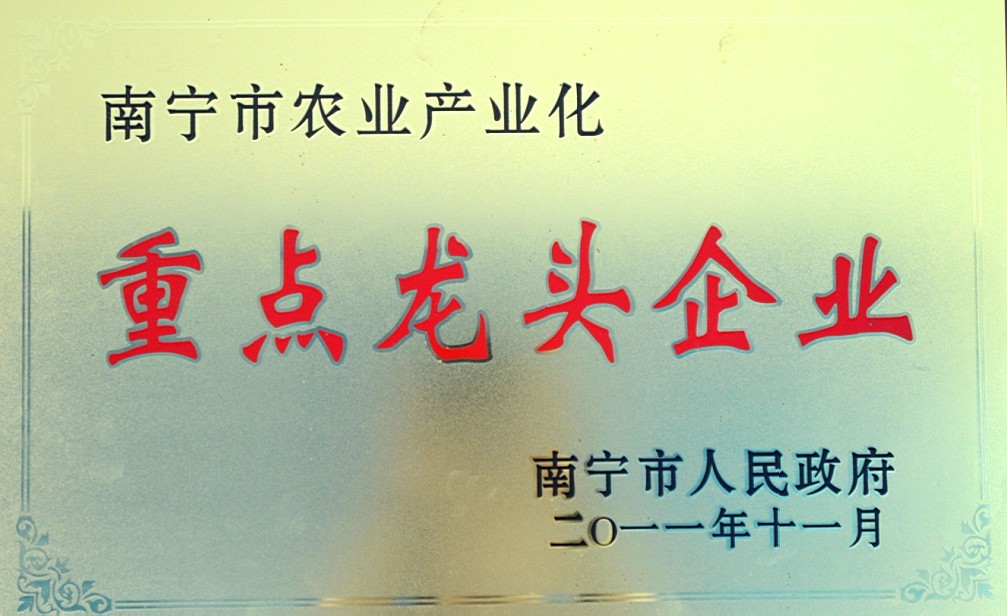 南宁市农业产业化
重点龙头企业
南宁市人民政府
二O一一年十一月